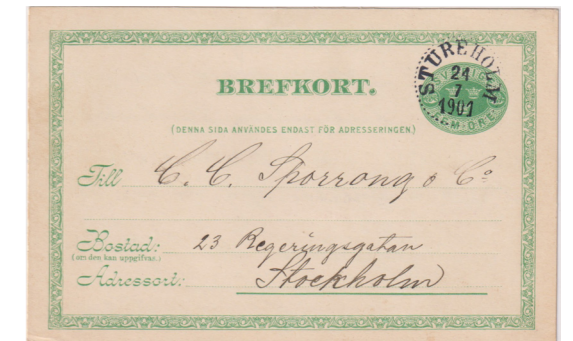 BREFKORT.
STUREHOLM
24
7
1901
SVERIGE
FEM ÖRE
(DENNA SIDA ANVÄNDES ENDAST FÖR ADRESSERINGEN.)
Till C. C. Sporrong & Co
Bostad: 23 Regeringsgatan
(om den kan uppgifvas.)
Adressort: Stockholm